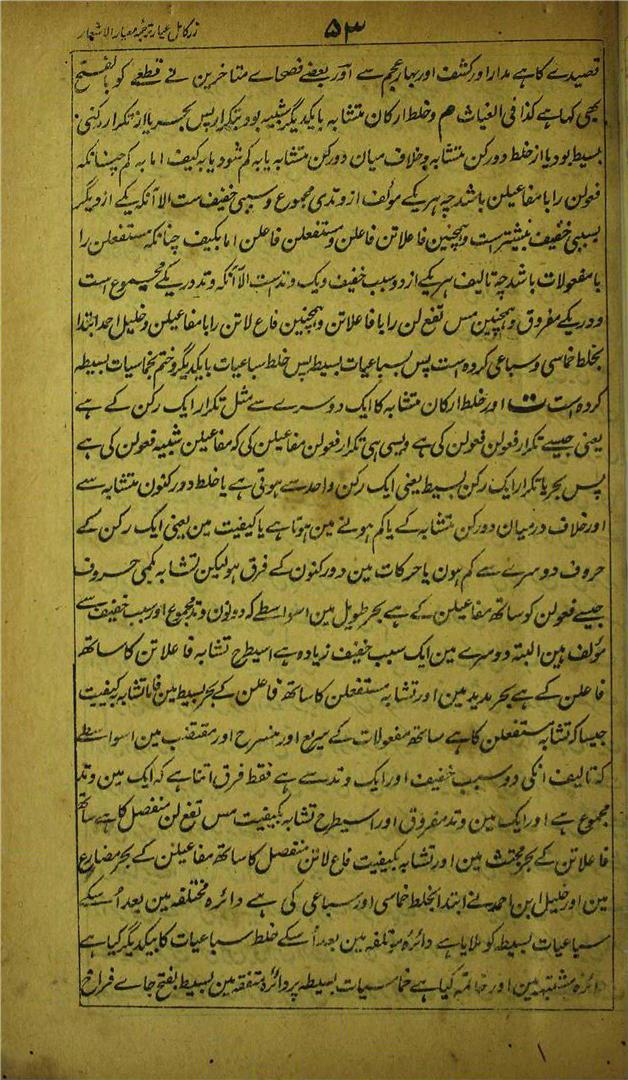 زر کامل عیار ترجمہ معیار الاشعار
۵۳
قصیدے کا ہے مدار اور کشف اور بہار عجم سے اور بعضے فصحاے متاخرین نے قطعے کو بالفتح
بھی کہا ہے کذا فی الغیاث هم و خلط ارکان متشابہ بایکدیگر شبیہ بود بتکرار پس بحر یا از تکرار رکنی
بسیط بود یا از خلط دو رکن متشابہ و خلاف میان دو رکن متشابہ یا بہ کم شود یا بہ کیف اما بہ کم چنانکہ
فعولن را با مفاعیلن باشد چہ ہر یکے مولف از وتدی مجموع و سببی خفیف ست الا آنکہ یکے از دیگر
بسببی خفیف بیشتر است و ہمچنین فاعلاتن فاعلن و مستفعلن فاعلن اما بکیف چنانکہ مستفعلن را
با مفعولات باشد چہ تالیف ہر یکے از دو سبب خفیف و یک وتد است الا آنکہ وتد در یکے مجموع است
و در یکے مفروق و ہمچنین مس تفع لن را با فاعلاتن و ہمچنین فاع لاتن را با مفاعیلن و خلیل احد ابتدا
بخلط خماسی و سباعی کردہ است پس بسباعیات بسیط پس خلط سباعیات بایکدیگر و ختم بخماسیات بسیطہ
کردہ است ت اور خلط ارکان متشابہ کا ایک دوسرے سے مثل تکرار ایک رکن کے ہے
یعنی جیسے تکرار فعولن فعولن کی ہے ویسی ہی تکرار فعولن مفاعیلن کی کہ مفاعیلن شبیہ فعولن کی ہے
پس بحر یا تکرار ایک رکن بسیط یعنی ایک رکن واحد سے ہوتی ہے یا خلط دو رکنون متشابہ سے
اور خلاف درمیان دو رکن متشابہ کے یا کم ہونے مین ہوتا ہے یا کیفیت مین یعنی ایک رکن کے
حروف دوسرے سے کم ہون یا حرکات مین دو رکنون کے فرق ہو لیکن تشابہ کمی حروف
جیسے فعولن کو ساتھ مفاعیلن کے ہے بحر طویل مین اسواسطے کہ دونون وتد مجموع اور سبب خفیف سے
مولف ہین البتہ دوسرے مین ایک سبب خفیف زیادہ ہے اسیطرح تشابہ فاعلاتن کا ساتھ
فاعلن کے ہے بحر مدید مین اور تشابہ مستفعلن کا ساتھ فاعلن کے بحر بسیط مین فاما تشابہ کیفیت
جیسا کہ تشابہ مستفعلن کا ہے ساتھ مفعولات کے سریع اور منسرح اور مقتضب مین اسواسطے
کہ تالیف انکی دو سبب خفیف اور ایک وتد سے ہے فقط فرق اتنا ہے کہ ایک مین وتد
مجموع ہے اور ایک مین وتد مفروق اور اسیطرح تشابہ بکیفیت مس تفع لن منفصل کا ہے ساتھ
فاعلاتن کے بحر مجتث مین اور تشابہ بکیفیت فاع لاتن منفصل کا ساتھ مفاعیلن کے بحر مضارع
مین اور خلیل ابن احمد نے ابتدا بخلط خماسی اور سباعی کی ہے دائرہ مختلفہ مین بعد اُسکے
سباعیات بسیطہ کو ملایا ہے دائرہ موتلفہ مین بعد اُسکے خلط سباعیات کا بیکدیگر کیا ہے
دائرہ مشتبہ مین اور خاتمہ کیا ہے خماسیات بسیطہ پر دائرہ متفقہ مین بسیط بفتح جاے فراخ